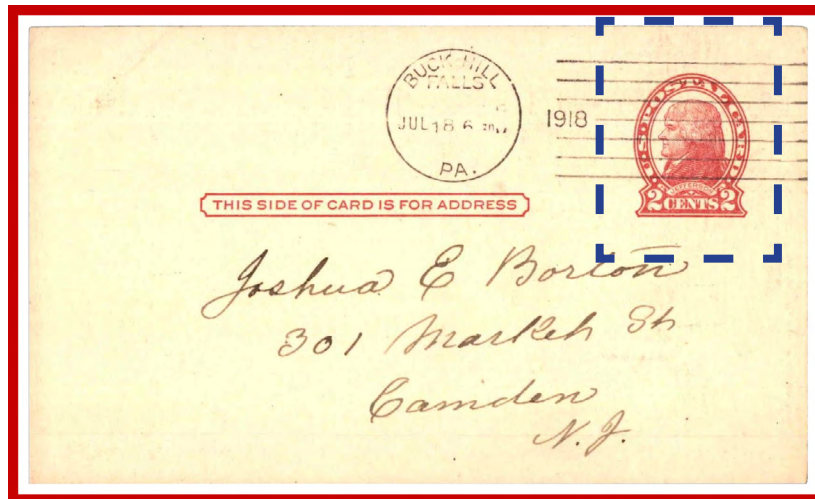 BUCK HILL
FALLS
JUL 18 6
1918
PA.
U.S. POSTAGE
JEFFERSON
2 CENTS 2
THIS SIDE OF CARD IS FOR ADDRESS
Joshua E Borton
301 Market St
Camden
N.J.